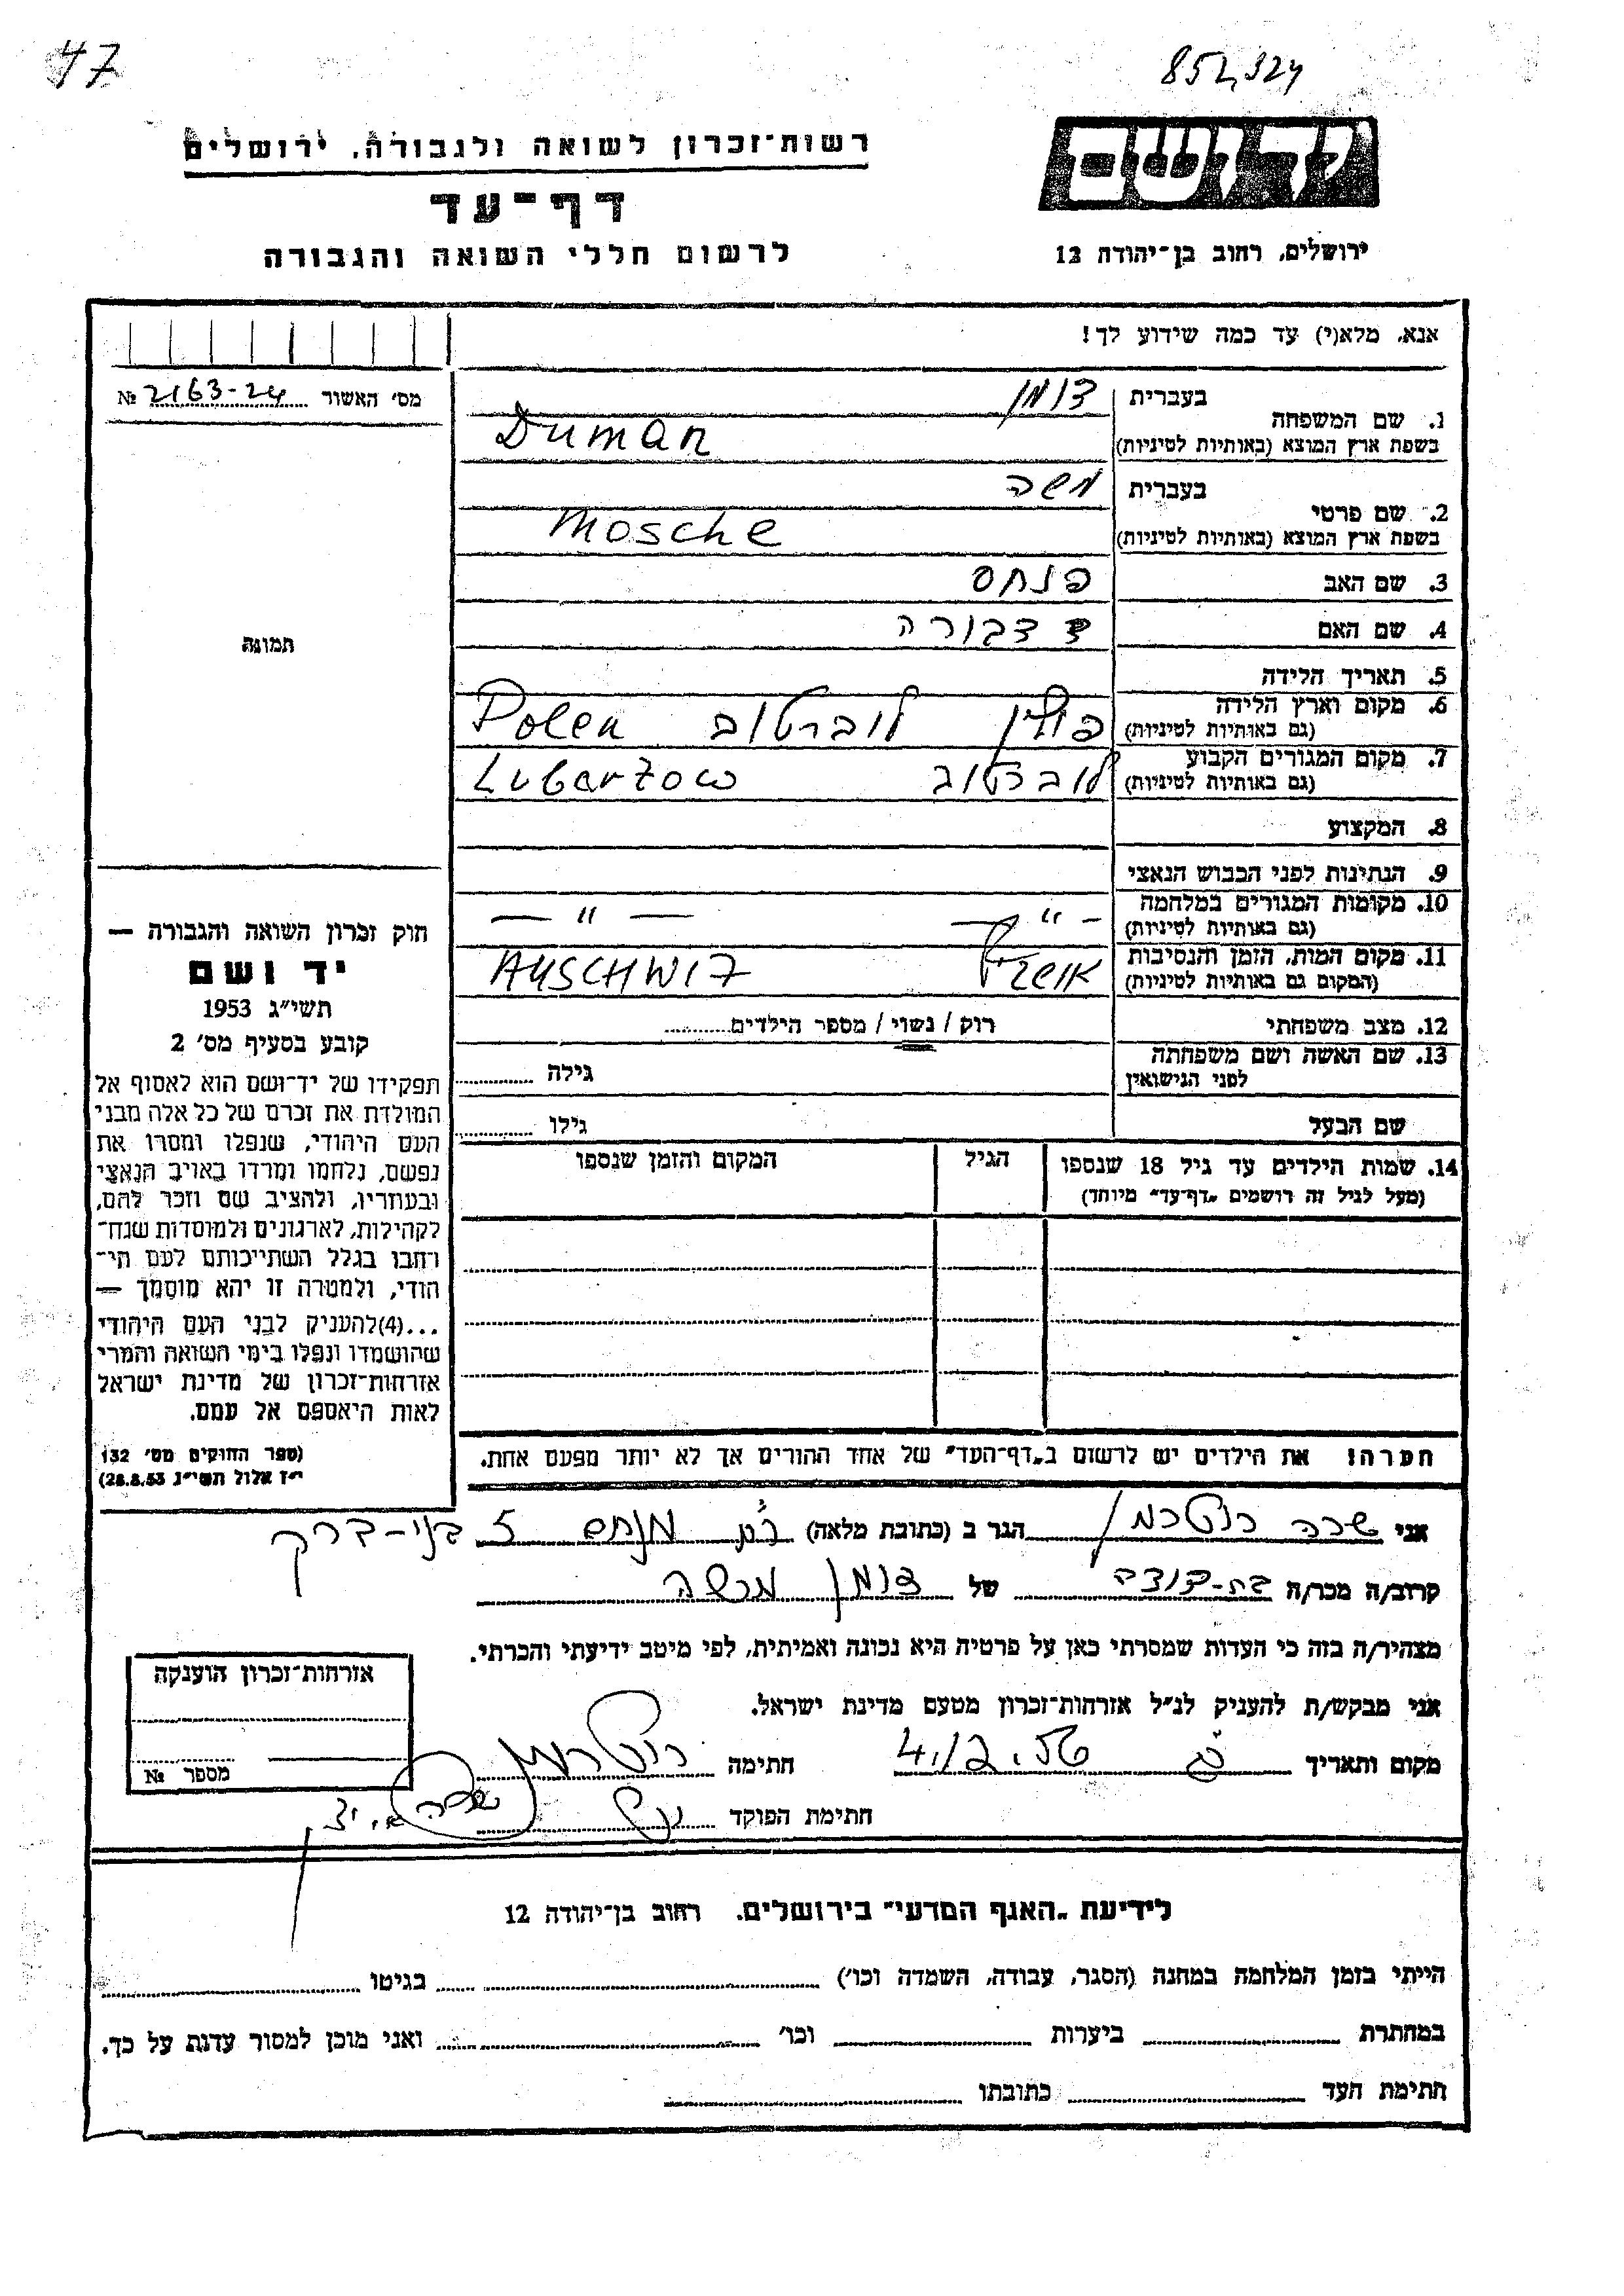 47
852,324
רשות־זכרון לשואה ולגבורה, ירושלים
יד ושם
דף־עד
לרשום חללי השואה והגבורה
ירושלים, רחוב בן־יהודה 12
אנא, מלא(י) עד כמה שידוע לך!
מס' האשור 2163-24 №
1. שם המשפחה בעברית דומן
בשפת ארץ המוצא (באותיות לטיניות) Duman
2. שם פרטי בעברית משה
בשפת ארץ המוצא (באותיות לטיניות) Mosche
3. שם האב פנחס
4. שם האם דבורה
5. תאריך הלידה
6. מקום וארץ הלידה (גם באותיות לטיניות) פולין לוברטוב Polen
7. מקום המגורים הקבוע (גם באותיות לטיניות) לוברטוב Lubartow
8. המקצוע
9. הנתינות לפני הכבוש הנאצי
10. מקומות המגורים במלחמה (גם באותיות לטיניות) — " — — " —
11. מקום המות, הזמן והנסיבות (המקום גם באותיות לטיניות) AUSCHWIZ
12. מצב משפחתי רוק / נשוי / מספר הילדים
13. שם האשה ושם משפחתה לפני הנישואין גילה
שם הבעל גילו
14. שמות הילדים עד גיל 18 שנספו הגיל המקום והזמן שנספו
(מעל לגיל זה רושמים „דף־עד" מיוחד)
הערה! את הילדים יש לרשום ב„דף־העד" של אחד ההורים אך לא יותר מפעם אחת.
תמונה
חוק זכרון השואה והגבורה —
יד ושם
תשי"ג 1953
קובע בסעיף מס' 2
תפקידו של יד־ושם הוא לאסוף אל
המולדת את זכרם של כל אלה מבני
העם היהודי, שנפלו ומסרו את
נפשם, נלחמו ומרדו באויב הנאצי
ובעוזריו, ולהציב שם וזכר להם,
לקהילות, לארגונים ולמוסדות שנח־
רבו בגלל השתייכותם לעם הי־
הודי, ולמטרה זו יהא מוסמך —
...(4)להעניק לבני העם היהודי
שהושמדו ונפלו בימי השואה והמרי
אזרחות־זכרון של מדינת ישראל
לאות היאספם אל עמם.
(ספר החוקים מס' 132
י"ז אלול תשי"ג 28.8.53)
אני שרה רוטרמן הגר ב (כתובת מלאה) 5 בני-ברק
קרוב/ה מכר/ה בת-דודה של דומן משה
מצהיר/ה בזה כי העדות שמסרתי כאן על פרטיה היא נכונה ואמיתית, לפי מיטב ידיעתי והכרתי.
אני מבקש/ת להעניק לנ"ל אזרחות־זכרון מטעם מדינת ישראל.
מקום ותאריך 4.12.56 חתימה רוטרמן שרה
חתימת הפוקד
אזרחות־זכרון הוענקה
מספר №
לידיעת „האגף המדעי" בירושלים, רחוב בן־יהודה 12
הייתי בזמן המלחמה במחנה (הסגר, עבודה, השמדה וכו') בגיטו
במחתרת ביערות וכו' ואני מוכן למסור עדות על כך.
חתימת העד כתובתו